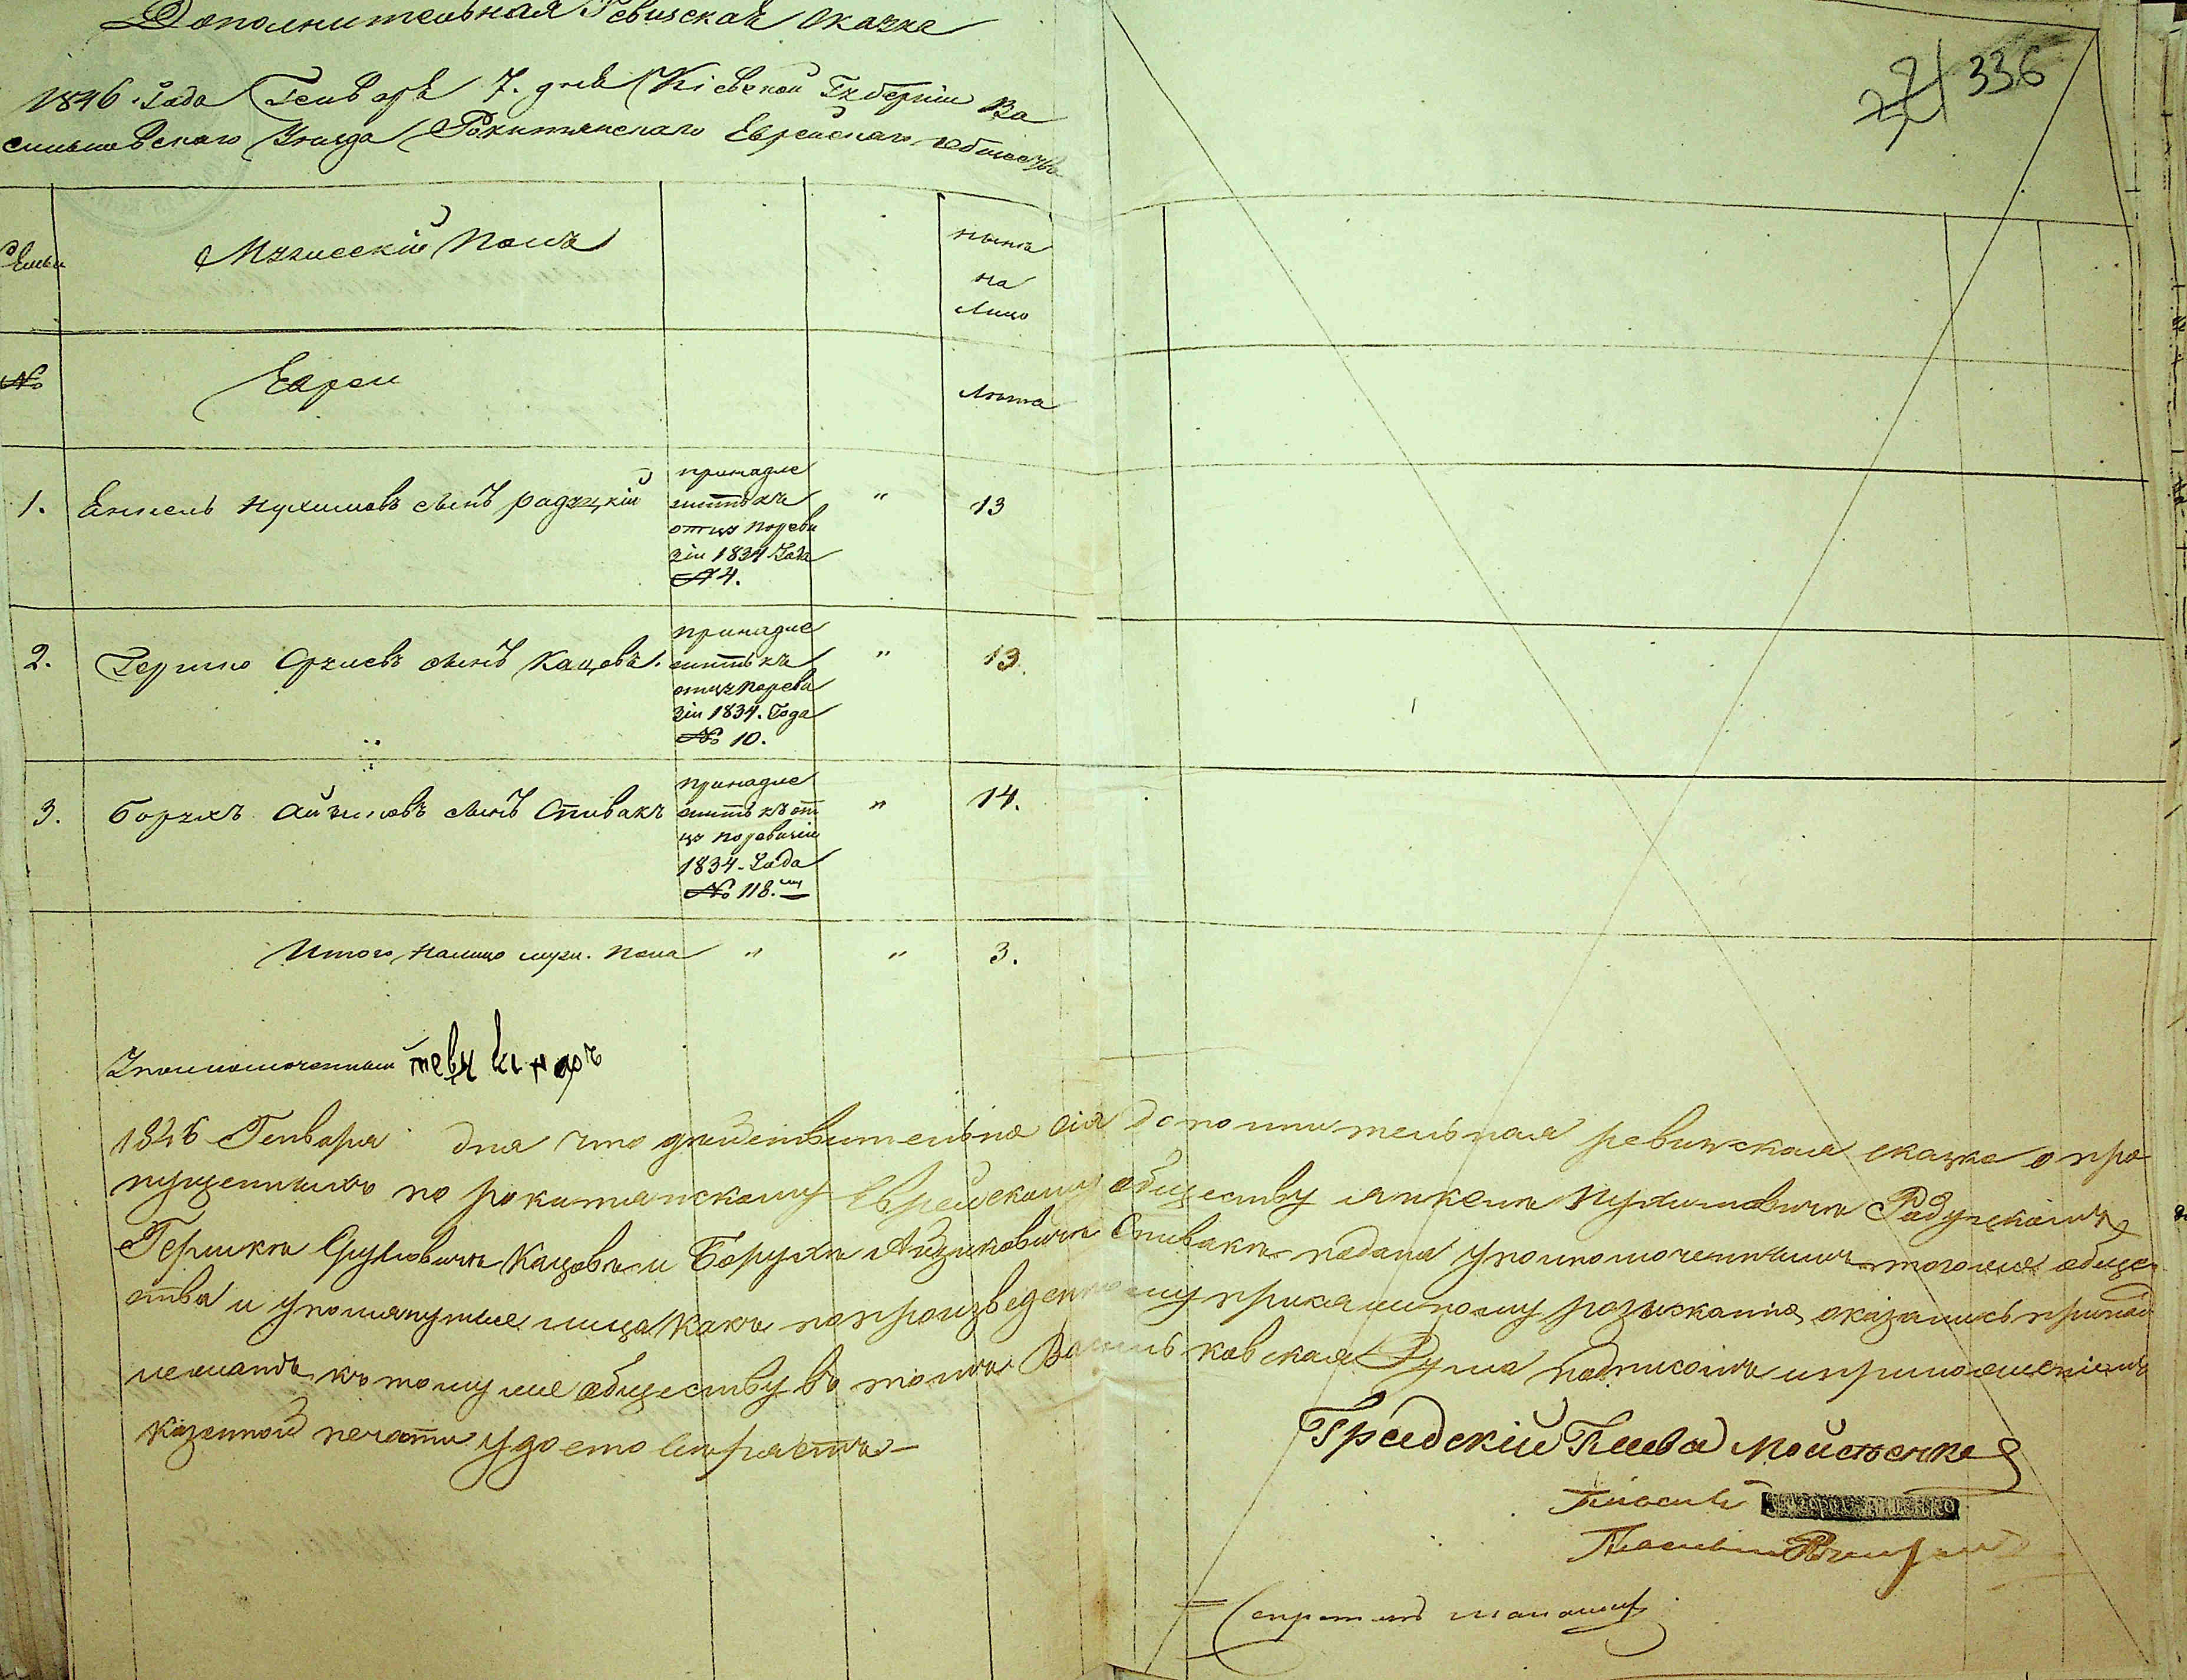 Дополнительная Ревизская Сказка
336
1846 Года Генваря 7. дня Кіевской Губерніи Ва
сильковскаго Уезда Рокитянскаго Еврейскаго общества
Мужескій Полъ
ныне
на
лицо
№
Евреи
лета
1. Янкель Нухимовъ сынъ Радуцкій
принадле
житъ къ
отцу по реви
зіи 1834 Года
№ 4.
" 13
2. Гершко Срулевъ сынъ Кацовъ.
принадле
житъ къ
отцу по реви
зіи 1834. Года
№ 10.
" 13.
3. Борухъ Айзиковъ сынъ Спивакъ
принадле
житъ къ от
цу по ревизіи
1834. Года
№ 118.
" 14.
Итого налицо муж. пола " " 3.
Уполномоченный
1846 Генваря дня что действительно сія дополнительная ревизская сказка о про
пущенныхъ по рокитянскому Еврейскому обществу Янкеле Нухимовиче Радуцкомъ
Гершке Сруловиче Кацове и Борухе Айзиковиче Спиваке подана уполномоченнымъ того же обще
ства и упомянутые лица какъ по произведенному розысканію оказались принад
лежатъ къ тому же обществу въ томъ Васильковская Дума подписомъ и приложеніемъ
казенной печати удостоверяетъ
Градскій Глава Мойсеенко
Гласный
Гласный
Секретарь